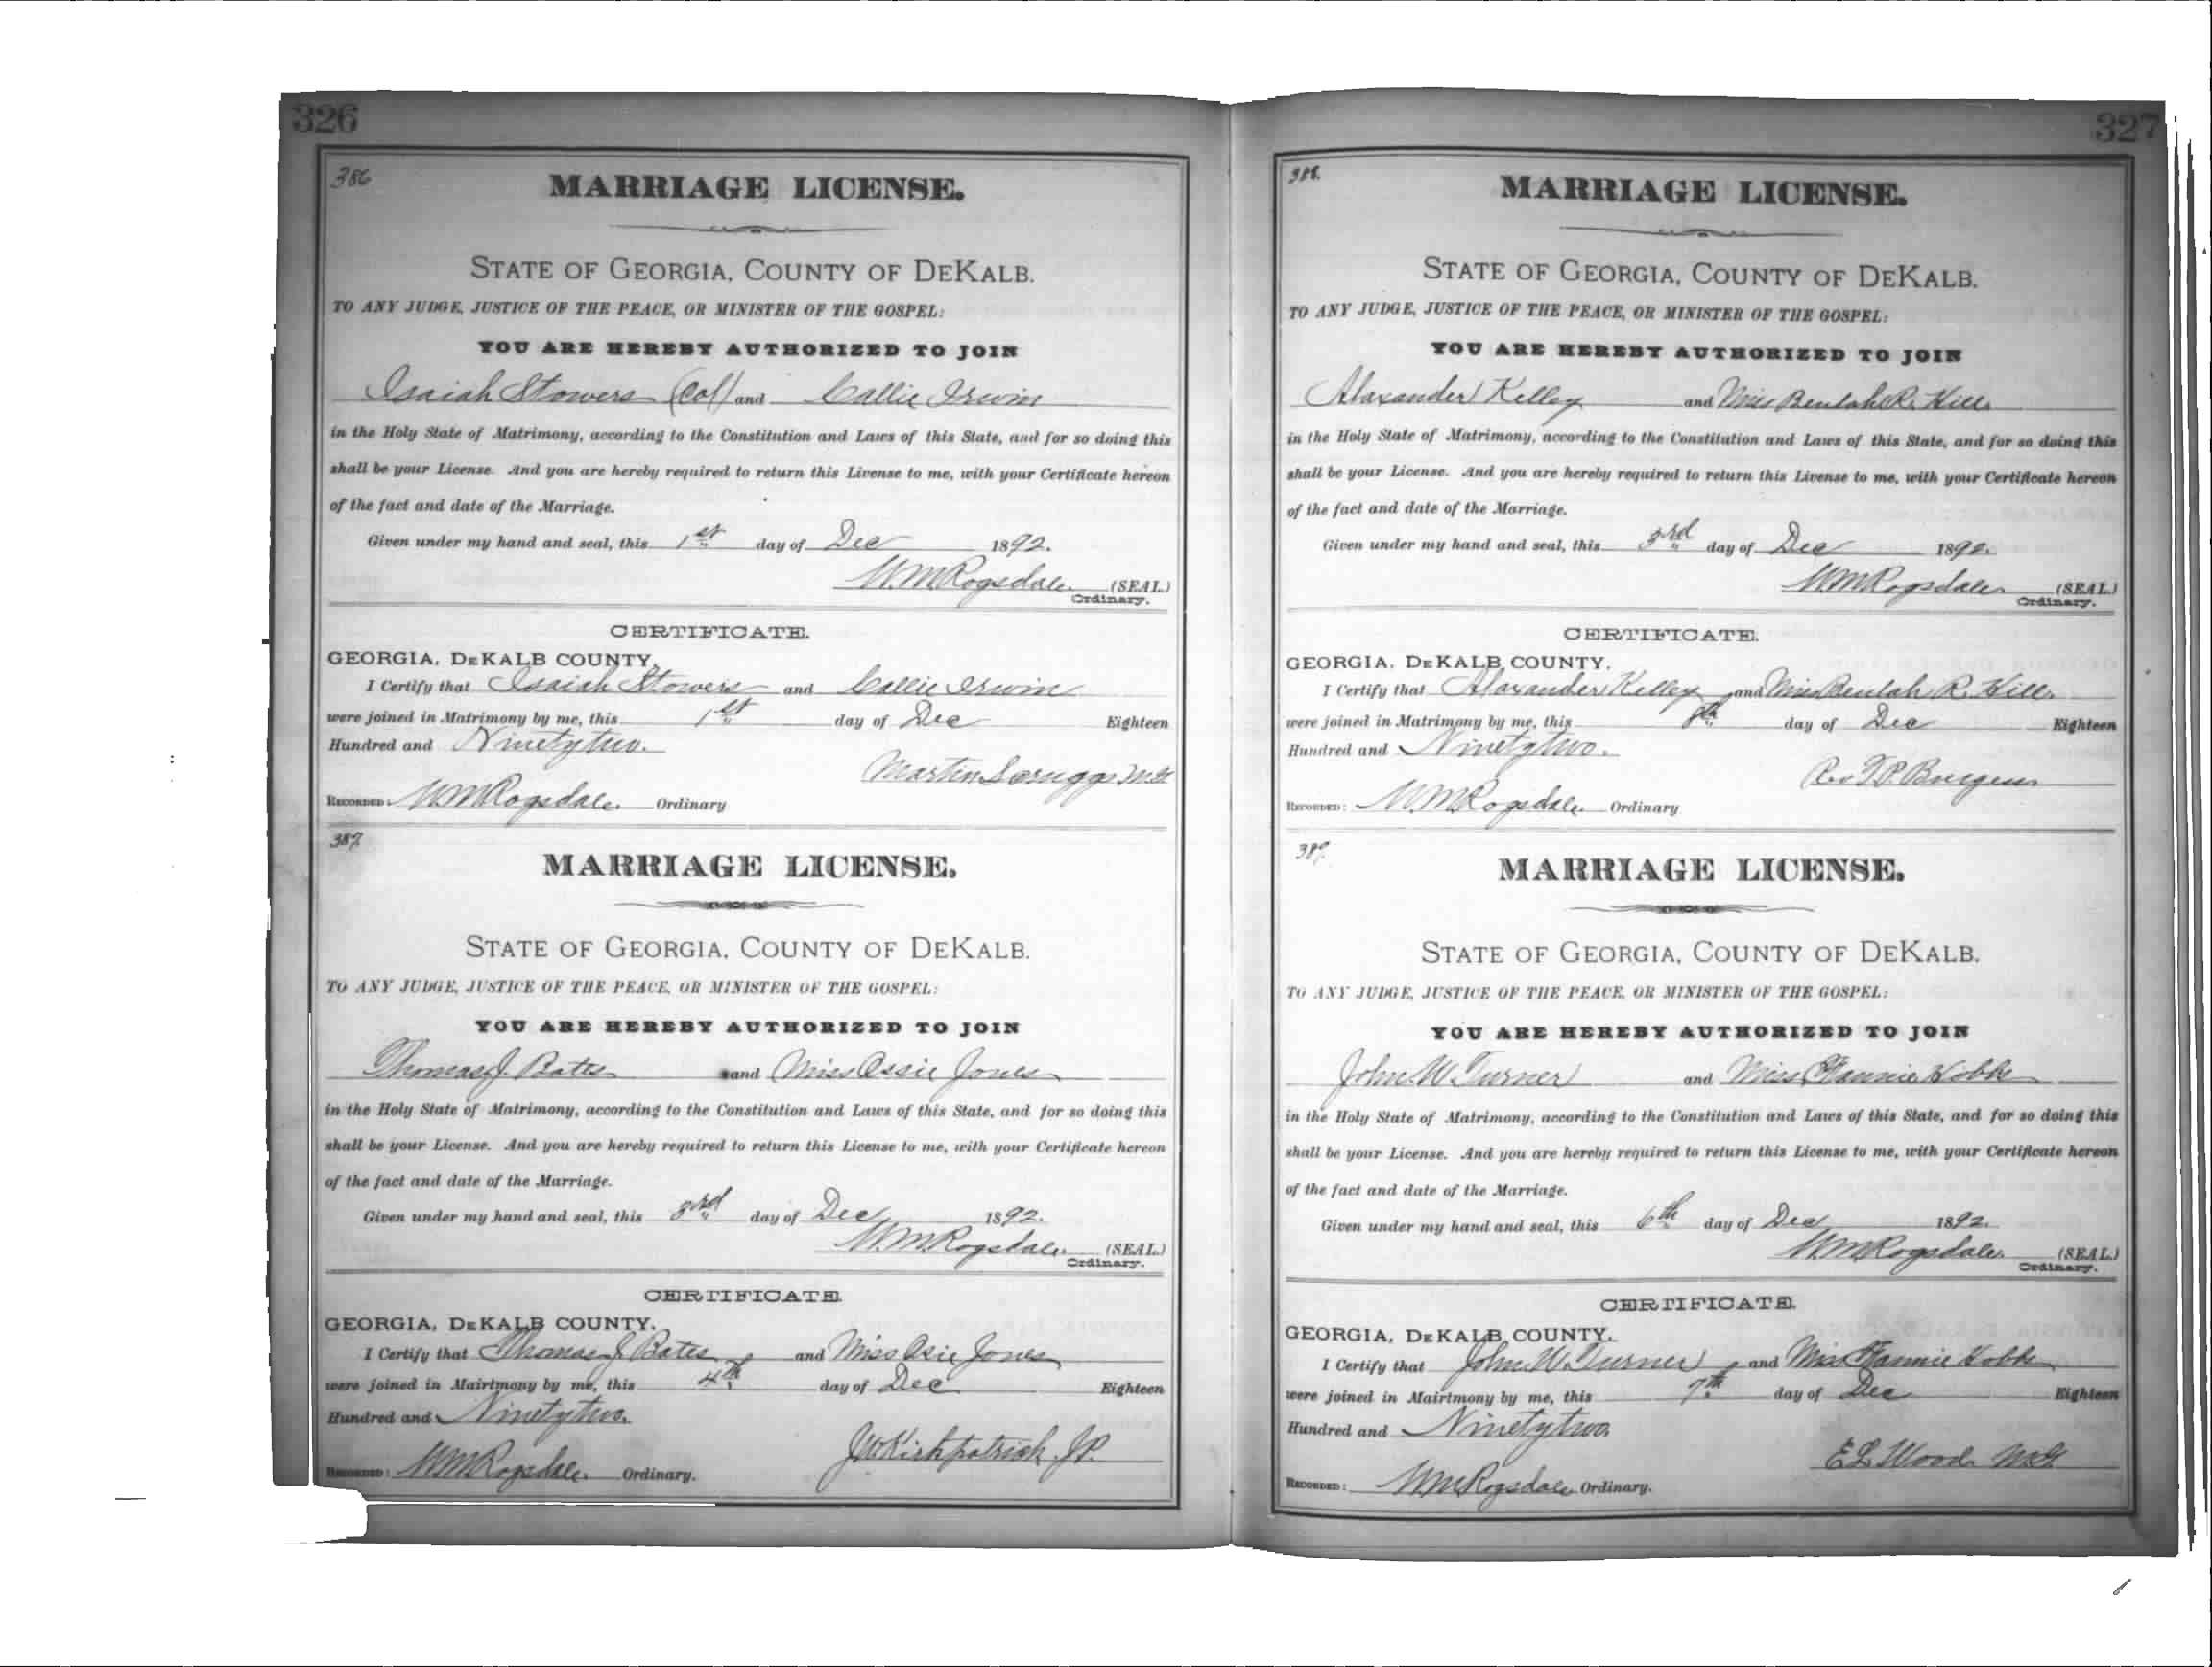 326
386
MARRIAGE LICENSE.
STATE OF GEORGIA, COUNTY OF DEKALB.
TO ANY JUDGE, JUSTICE OF THE PEACE, OR MINISTER OF THE GOSPEL:
YOU ARE HEREBY AUTHORIZED TO JOIN
Isaiah Stowers (Col) and Callie Irwin
in the Holy State of Matrimony, according to the Constitution and Laws of this State, and for so doing this
shall be your License. And you are hereby required to return this License to me, with your Certificate hereon
of the fact and date of the Marriage.
Given under my hand and seal, this 1st day of Dec 1892.
W.M.Ragsdale (SEAL)
Ordinary.
CERTIFICATE.
GEORGIA, DEKALB COUNTY.
I Certify that Isaiah Stowers and Callie Irwin
were joined in Matrimony by me, this 1st day of Dec Eighteen
Hundred and Ninety two.
Martin Scruggs M.G
RECORDED: W.M.Ragsdale. Ordinary
387
MARRIAGE LICENSE.
STATE OF GEORGIA, COUNTY OF DEKALB.
TO ANY JUDGE, JUSTICE OF THE PEACE, OR MINISTER OF THE GOSPEL:
YOU ARE HEREBY AUTHORIZED TO JOIN
Thomas J. Bates and Miss Ossie Jones
in the Holy State of Matrimony, according to the Constitution and Laws of this State, and for so doing this
shall be your License. And you are hereby required to return this License to me, with your Certificate hereon
of the fact and date of the Marriage.
Given under my hand and seal, this 3rd day of Dec 1892.
W.M.Ragsdale. (SEAL)
Ordinary.
CERTIFICATE.
GEORGIA, DEKALB COUNTY.
I Certify that Thomas J Bates and Miss Osie Jones
were joined in Mairtmony by me, this 4th day of Dec Eighteen
Hundred and Ninety two.
Kirkpatrick J.P.
RECORDED: W.M.Ragsdale. Ordinary.
327
388.
MARRIAGE LICENSE.
STATE OF GEORGIA, COUNTY OF DEKALB.
TO ANY JUDGE, JUSTICE OF THE PEACE, OR MINISTER OF THE GOSPEL:
YOU ARE HEREBY AUTHORIZED TO JOIN
Alaxander Kelley and Miss Beulah R. Hill.
in the Holy State of Matrimony, according to the Constitution and Laws of this State, and for so doing this
shall be your License. And you are hereby required to return this License to me, with your Certificate hereon
of the fact and date of the Marriage.
Given under my hand and seal, this 3rd day of Dec 1892.
W.M.Ragsdale (SEAL)
Ordinary.
CERTIFICATE.
GEORGIA, DEKALB COUNTY.
I Certify that Alaxander Kelley and Miss Beulah R. Hill.
were joined in Matrimony by me, this 8th day of Dec Eighteen
Hundred and Ninety two.
Rev Burgess
RECORDED: W.M.Ragsdale. Ordinary
389.
MARRIAGE LICENSE.
STATE OF GEORGIA, COUNTY OF DEKALB.
TO ANY JUDGE, JUSTICE OF THE PEACE, OR MINISTER OF THE GOSPEL:
YOU ARE HEREBY AUTHORIZED TO JOIN
John W. Turner and Miss Fannie Hobbs
in the Holy State of Matrimony, according to the Constitution and Laws of this State, and for so doing this
shall be your License. And you are hereby required to return this License to me, with your Certificate hereon
of the fact and date of the Marriage.
Given under my hand and seal, this 6th day of Dec 1892.
W.M.Ragsdale. (SEAL)
Ordinary.
CERTIFICATE.
GEORGIA, DEKALB COUNTY.
I Certify that John W. Turner and Miss Fannie Hobbs
were joined in Mairtmony by me, this 7th day of Dec Eighteen
Hundred and Ninety two.
E L Wood M.G
RECORDED: W.M.Ragsdale Ordinary.